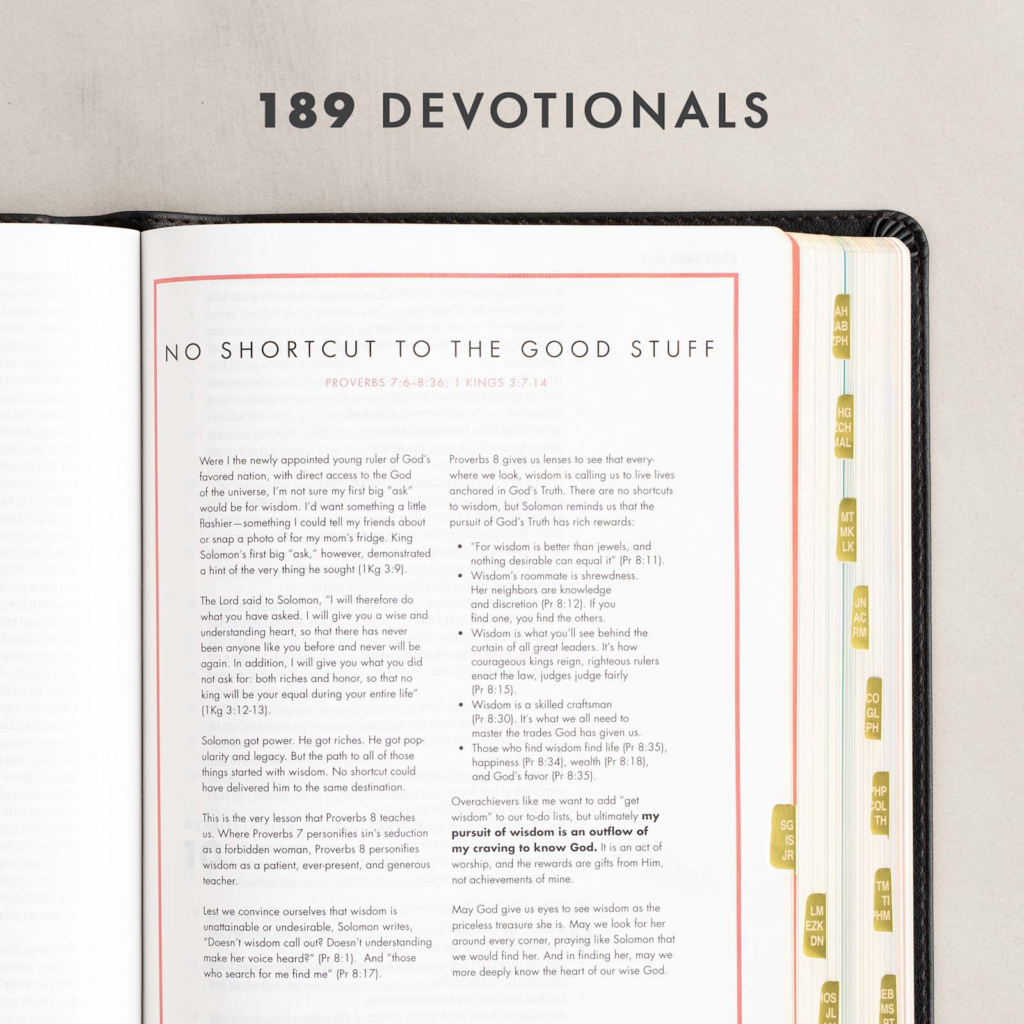 189 DEVOTIONALS
NO SHORTCUT TO THE GOOD STUFF
PROVERBS 7:6–8:36; 1 KINGS 3:7-14
Were I the newly appointed young ruler of God's
favored nation, with direct access to the God
of the universe, I'm not sure my first big "ask"
would be for wisdom. I'd want something a little
flashier—something I could tell my friends about
or snap a photo of for my mom's fridge. King
Solomon's first big "ask," however, demonstrated
a hint of the very thing he sought (1Kg 3:9).
The Lord said to Solomon, "I will therefore do
what you have asked. I will give you a wise and
understanding heart, so that there has never
been anyone like you before and never will be
again. In addition, I will give you what you did
not ask for: both riches and honor, so that no
king will be your equal during your entire life"
(1Kg 3:12-13).
Solomon got power. He got riches. He got pop-
ularity and legacy. But the path to all of those
things started with wisdom. No shortcut could
have delivered him to the same destination.
This is the very lesson that Proverbs 8 teaches
us. Where Proverbs 7 personifies sin's seduction
as a forbidden woman, Proverbs 8 personifies
wisdom as a patient, ever-present, and generous
teacher.
Lest we convince ourselves that wisdom is
unattainable or undesirable, Solomon writes,
"Doesn't wisdom call out? Doesn't understanding
make her voice heard?" (Pr 8:1). And "those
who search for me find me" (Pr 8:17).
Proverbs 8 gives us lenses to see that every-
where we look, wisdom is calling us to live lives
anchored in God's Truth. There are no shortcuts
to wisdom, but Solomon reminds us that the
pursuit of God's Truth has rich rewards:
• "For wisdom is better than jewels, and
nothing desirable can equal it" (Pr 8:11).
• Wisdom's roommate is shrewdness.
Her neighbors are knowledge
and discretion (Pr 8:12). If you
find one, you find the others.
• Wisdom is what you'll see behind the
curtain of all great leaders. It's how
courageous kings reign, righteous rulers
enact the law, judges judge fairly
(Pr 8:15).
• Wisdom is a skilled craftsman
(Pr 8:30). It's what we all need to
master the trades God has given us.
• Those who find wisdom find life (Pr 8:35),
happiness (Pr 8:34), wealth (Pr 8:18),
and God's favor (Pr 8:35).
Overachievers like me want to add "get
wisdom" to our to-do lists, but ultimately my
pursuit of wisdom is an outflow of
my craving to know God. It is an act of
worship, and the rewards are gifts from Him,
not achievements of mine.
May God give us eyes to see wisdom as the
priceless treasure she is. May we look for her
around every corner, praying like Solomon that
we would find her. And in finding her, may we
more deeply know the heart of our wise God.
SG
IS
JR
LM
EZK
DN
OS
JL
AH
AB
ZPH
HG
ZCH
MAL
MT
MK
LK
JN
AC
RM
CO
GL
EPH
PHP
COL
TH
TM
TI
PHM
EB
MS